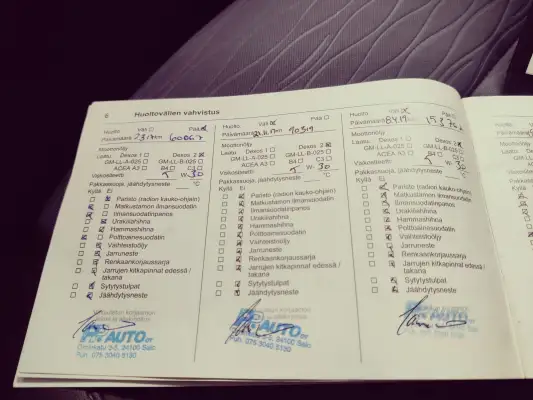 6 Huoltovälien vahvistus
Huolto Väli ☐ Pää ☒
Päivämäärä km 60067
Moottoriöljy
Laatu Dexos 1 ☐ Dexos 2 ☒
GM-LL-A-025 ☐ GM-LL-B-025 ☐
ACEA A3 ☐ B4 ☐ C3 ☐
Viskositeetti 5 W- 30
Pakkassuoja, jäähdytysneste °C
Kyllä Ei
Paristo (radion kauko-ohjain)
Matkustamon ilmansuodatin
Ilmansuodatinpanos
Urakiilahihna
Hammashihna
Polttoainesuodatin
Vaihteistoöljy
Jarruneste
Renkaankorjaussarja
Jarrujen kitkapinnat edessä /
takana
Sytytystulpat
Jäähdytysneste
AUTO OY
24100 Salo
Puh. 075 3040 5130
Huolto Väli ☒ Pää ☐
Päivämäärä km 70319
Moottoriöljy
Laatu Dexos 1 ☐ Dexos 2 ☒
GM-LL-A-025 ☐ GM-LL-B-025 ☐
ACEA A3 ☐ B4 ☐ C3 ☐
Viskositeetti 5 W- 30
Pakkassuoja, jäähdytysneste °C
Kyllä Ei
Paristo (radion kauko-ohjain)
Matkustamon ilmansuodatin
Ilmansuodatinpanos
Urakiilahihna
Hammashihna
Polttoainesuodatin
Vaihteistoöljy
Jarruneste
Renkaankorjaussarja
Jarrujen kitkapinnat edessä /
takana
Sytytystulpat
Jäähdytysneste
AUTO OY
Salo
Puh. 075 3040 5130
Huolto Väli ☒ Pää ☐
Päivämäärä
Moottoriöljy
Laatu Dexos 1 ☐ Dexos 2 ☒
GM-LL-A-025 ☐ GM-LL-B-025 ☐
ACEA A3 ☐ B4 ☐ C3 ☐
Viskositeetti 5 W- 30
Pakkassuoja, jäähdytysneste °C
Kyllä Ei
Paristo (radion kauko-ohjain)
Matkustamon ilmansuodatin
Ilmansuodatinpanos
Urakiilahihna
Hammashihna
Polttoainesuodatin
Vaihteistoöljy
Jarruneste
Renkaankorjaussarja
Jarrujen kitkapinnat edessä /
takana
Sytytystulpat
Jäähdytysneste
AUTO OY